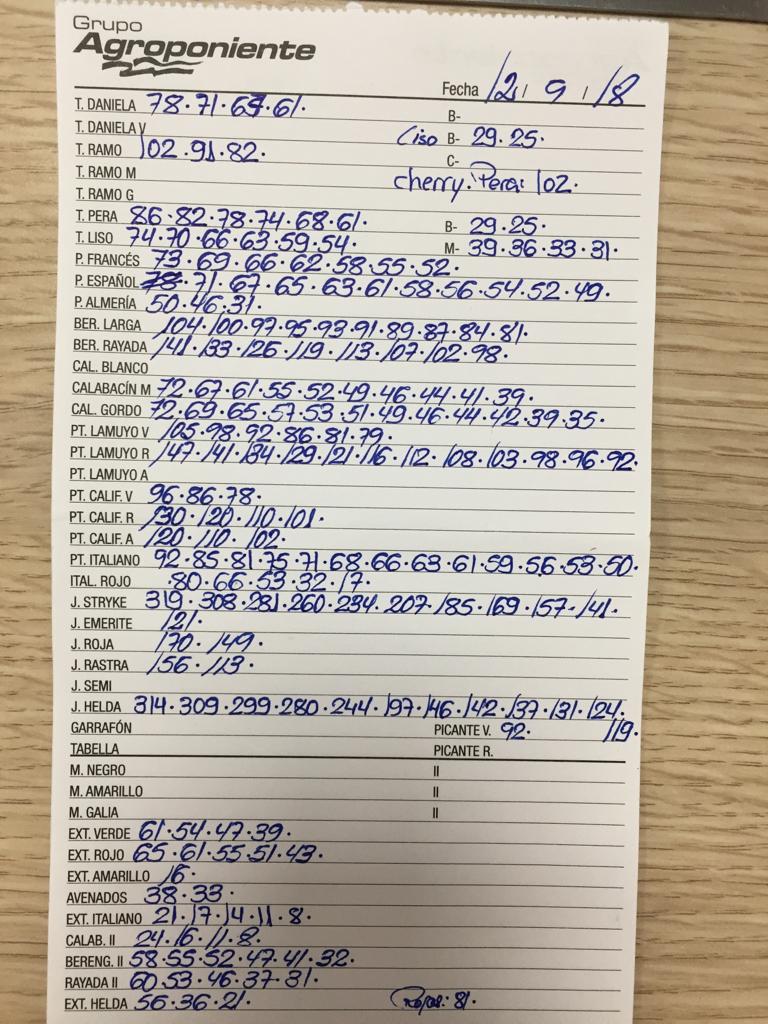 Grupo
Agroponiente
Fecha 12 / 9 / 18
T. DANIELA 78.71.67.61.
B-
T. DANELA V
Liso B- 29.25.
T. RAMO 102.91.82.
C-
T. RAMO M
cherry. Pera: 102.
T. RAMO G
T. PERA 86.82.78.74.68.61.
B- 29.25.
T. LISO 74.70.66.63.59.54.
M- 39.36.33.31.
P. FRANCÉS 73.69.66.62.58.55.52.
P. ESPAÑOL 71.67.65.63.61.58.56.54.52.49.
P. ALMERÍA 50.46.31.
BER. LARGA 104.100.97.95.93.91.89.87.84.81.
BER. RAYADA 141.133.126.119.113.107.102.98.
CAL. BLANCO
CALABACÍN M 72.67.61.55.52.49.46.44.41.39.
CAL. GORDO 72.69.65.57.53.51.49.46.44.42.39.35.
PT. LAMUYO V 105.98.92.86.81.79.
PT. LAMUYO R 147.141.134.129.121.116.112.108.103.98.96.92.
PT. LAMUYO A
PT. CALIF. V 96.86.78.
PT. CALIF. R 130.120.110.101.
PT. CALIF. A 120.110.102.
PT. ITALIANO 92.85.81.75.71.68.66.63.61.59.56.53.50.
ITAL. ROJO 80.66.53.32.17.
J. STRYKE 319.308.281.260.234.207.185.169.157.141.
J. EMERITE 121.
J. ROJA 170.149.
J. RASTRA 156.113.
J. SEMI
J. HELDA 314.309.299.280.244.197.146.142.137.131.124.
GARRAFÓN
PICANTE V. 92. 119.
TABELLA
PICANTE R.
M. NEGRO II
M. AMARILLO II
M. GALIA II
EXT. VERDE 61.54.47.39.
EXT. ROJO 65.61.55.51.43.
EXT. AMARILLO 16.
AVENADOS 38.33.
EXT. ITALIANO 21.17.14.11.8.
CALAB. II 24.16.11.8.
BERENG. II 58.55.52.47.41.32.
RAYADA II 60.53.46.37.31.
EXT. HELDA 56.36.21.
Rojas: 81.